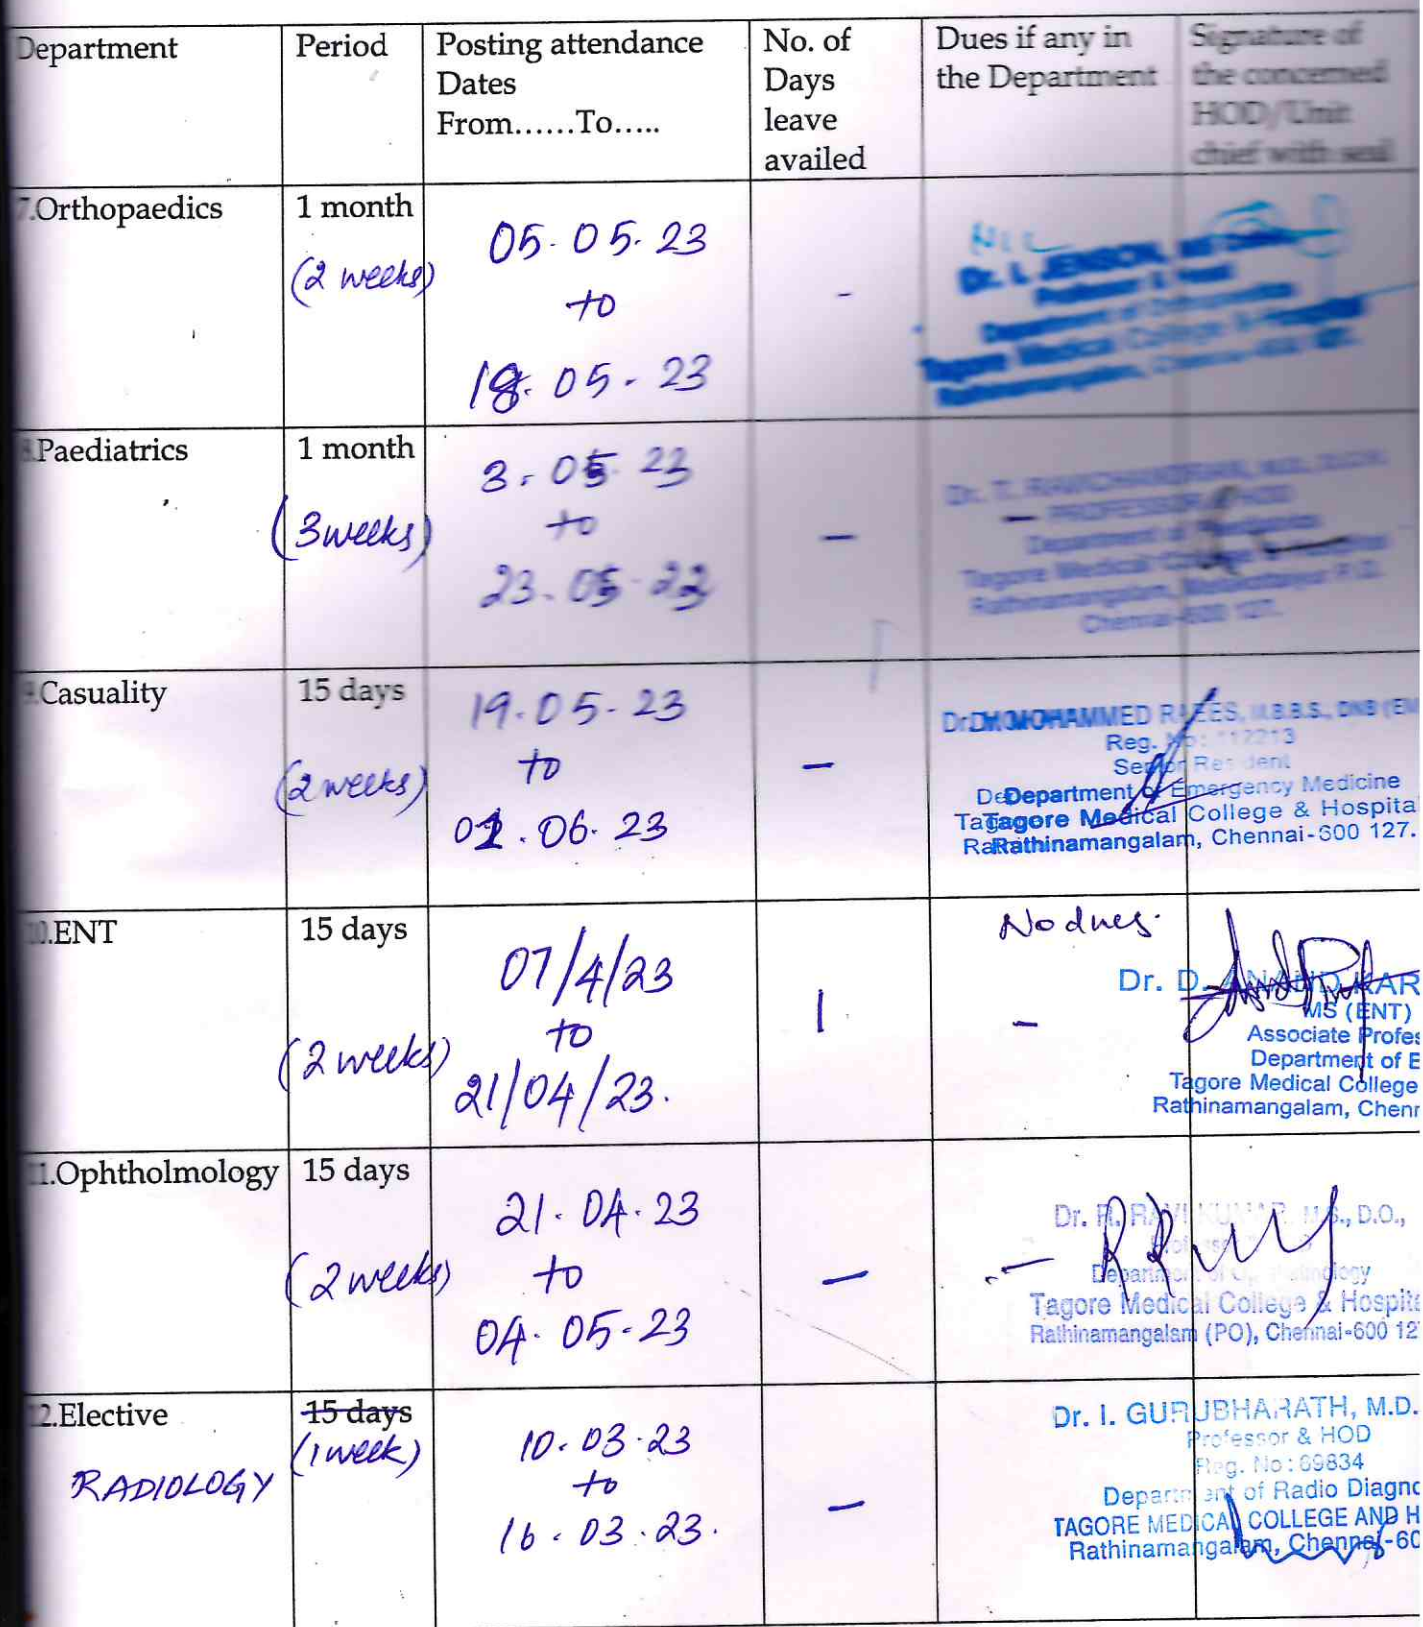 Department
Period
Posting attendance
Dates
From......To.....
No. of
Days
leave
availed
Dues if any in
the Department
Signature of
the concerned
HOD/Unit
chief with seal
7.Orthopaedics
1 month
(2 weeks)
05.05.23
to
18.05.23
-
NIL
Dr. I. JENSON,
Professor & Head
Department of Orthopaedics
Tagore Medical College & Hospital
Rathinamangalam, Chennai-600 127.
.Paediatrics
1 month
(3 weeks)
3.05.23
to
23.05.23
-
-
Dr. T. RAVICHANDRAN,
PROFESSOR HOD
Department of
Tagore Medical College & Hospital
Rathinamangalam, P.O.
Chennai-600 127.
.Casuality
15 days
(2 weeks)
19.05.23
to
01.06.23
-
MOHAMMED RAEES, M.B.B.S., DNB (EM
Reg. No:
Senior Resident
Department of Emergency Medicine
Tagore Medical College & Hospita
Rathinamangalam, Chennai-600 127.
0.ENT
15 days
(2 weeks)
07/4/23
to
21/04/23.
1
No dues.
-
Dr. D. ANAND KAR
MS (ENT)
Associate Profes
Department of E
Tagore Medical College
Rathinamangalam, Chenn
1.Ophtholmology
15 days
(2 weeks)
21.04.23
to
04.05.23
-
-
Dr. R. RAVI KUMAR, M.S., D.O.,
Department of Ophthalmology
Tagore Medical College & Hospita
Rathinamangalam (PO), Chennai-600 12
2.Elective
RADIOLOGY
15 days
(1 week)
10.03.23
to
16.03.23.
-
Dr. I. GURUBHARATH, M.D.
Professor & HOD
Reg. No: 69834
Department of Radio Diagno
TAGORE MEDICAL COLLEGE AND H
Rathinamangalam, Chennai-60